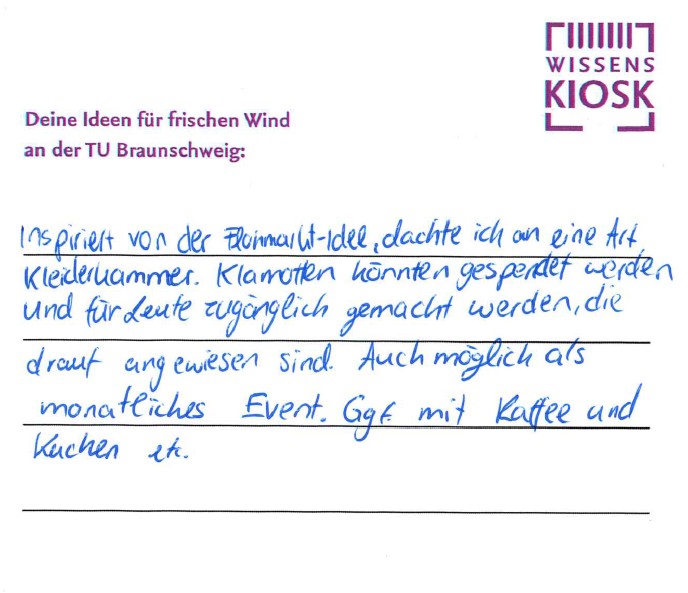 WISSENS
KIOSK
Deine Ideen für frischen Wind
an der TU Braunschweig:
Inspiriert von der Flohmarkt-Idee, dachte ich an eine Art
Kleiderkammer. Klamotten könnten gespendet werden
und für Leute zugänglich gemacht werden, die
drauf angewiesen sind. Auch möglich als
monatliches Event. Ggf. mit Kaffee und
Kuchen etc.